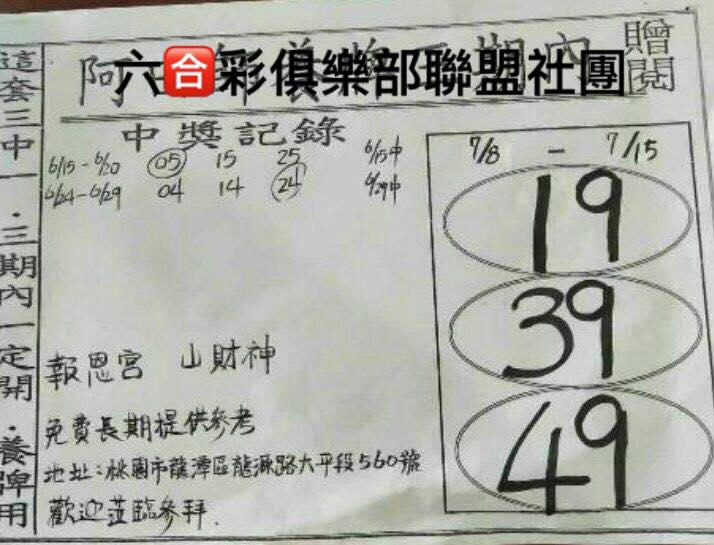 六合彩俱樂部聯盟社團
阿
期內
贈閱
這套三中一．三期內一定開．養牌用
中獎記錄
6/15-6/20 05 15 25 6/15中
6/24-6/29 04 14 24 6/29中
7/8 — 7/15
19
39
49
報恩宮 山財神
免費長期提供參考
地址：桃園市龍潭區龍源路大平段560號
歡迎蒞臨參拜.